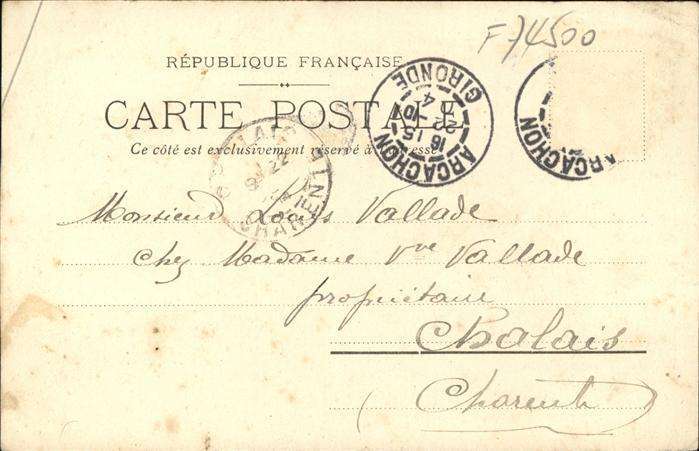 F-74500
RÉPUBLIQUE FRANÇAISE
CARTE POSTALE
Ce côté est exclusivement réservé à l'adresse
ARCACHON
16 15
22 -10
4
GIRONDE
ARCACHON
CHALAIS
22
CHARENTE
Monsieur Louis Vallade
chez Madame Vve Vallade
propriétaire
Chalais
Charente